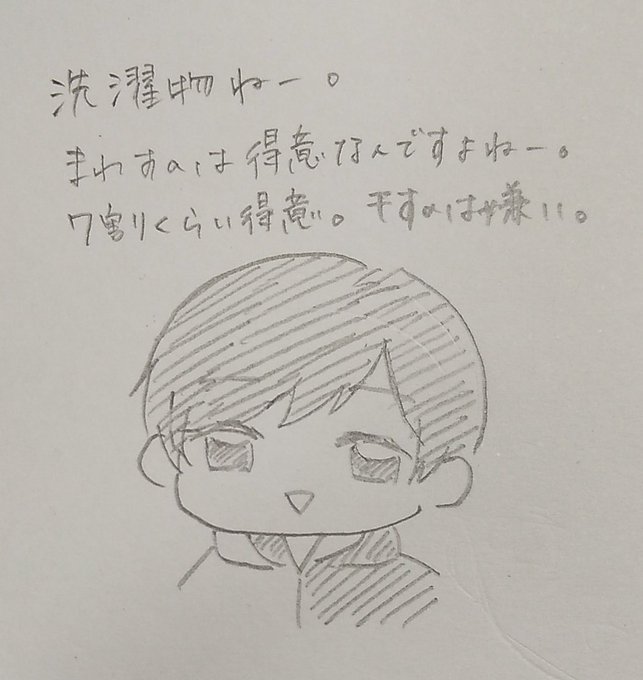 洗濯物ねー。
まわすのは得意なんですよねー。
7割りくらい得意。干すのは嫌い。